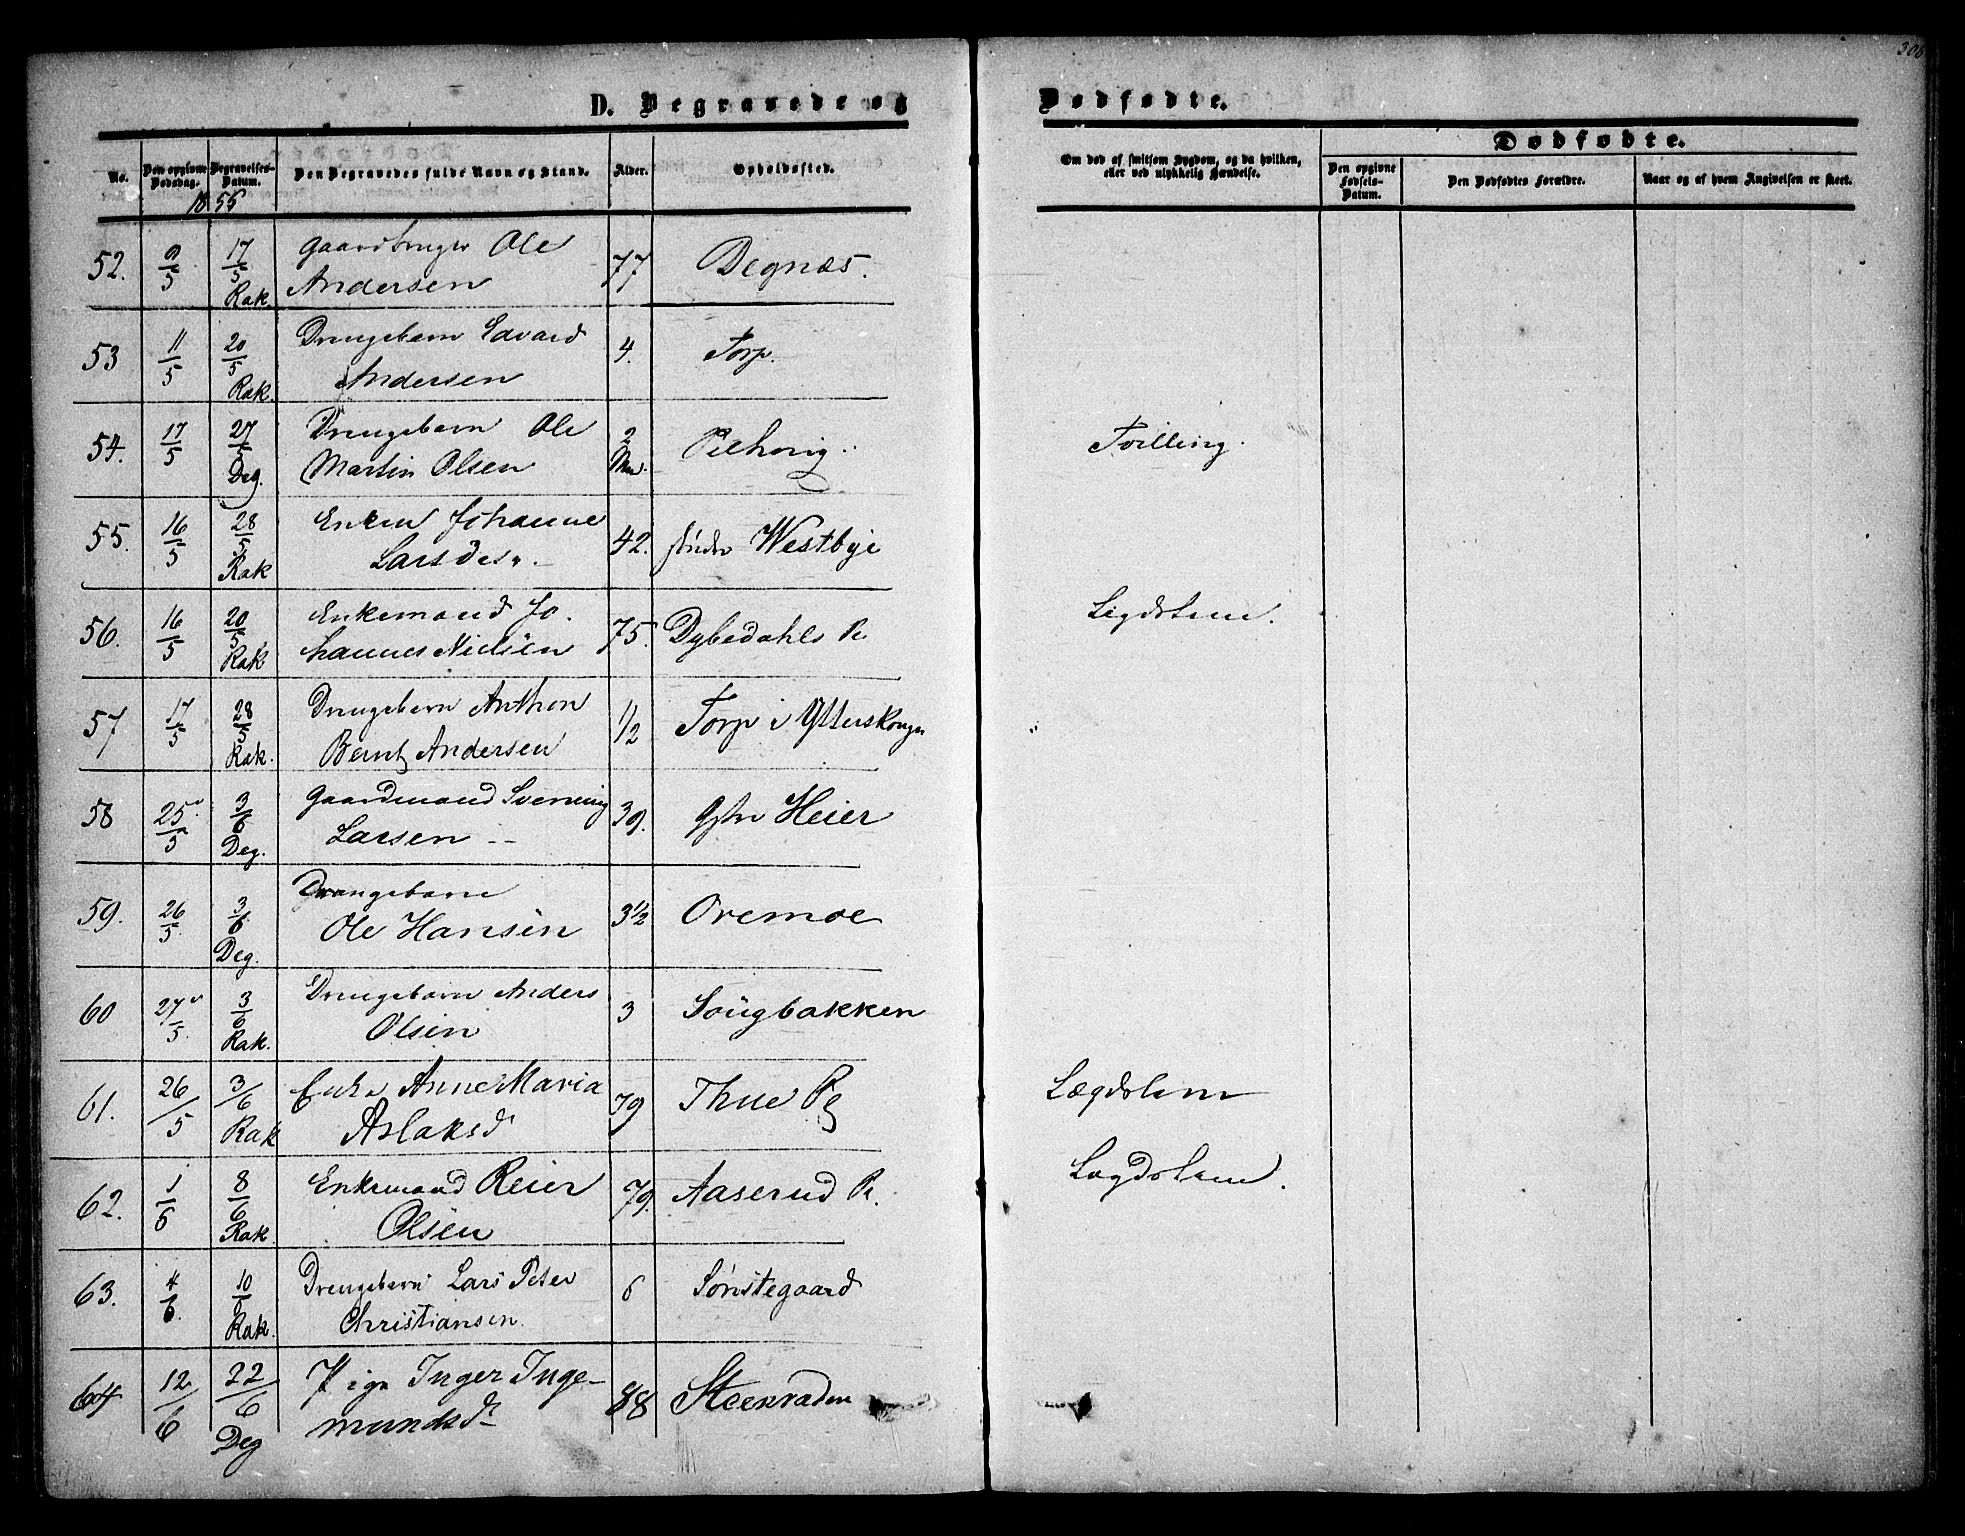 306
D. Begravede og Dødfødte.
Dødfødte.
No. Den opgivne Dødsdag. Begravelses-Datum. Den Begravedes fulde Navn og Stand. Alder. Opholdssted. Om død af smitsom Sygdom, og da hvilken, eller ved ulykkelig Hændelse. Den opgivne Fødsels-Datum. Den Dødfødtes Forældre. Naar og af hvem Angivelsen er skeet.
1855
52. 9/5 17/5 Rak. Gaardbruger Ole
Andersen 77 Degnæs.
53 11/5 20/5 Rak. Drengebarn Edvard
Andersen 4. Torp.
54. 17/5 27/5 Deg. Drengebarn Ole
Martin Olsen 2 Mn. Tvilling.
55. 16/5 28/5 Rak Enken Johanne
Larsdes. 42. Westbye
56. 16/5 20/5 Rak Enkemand Jo.
hannes Nielsen 75. Dybedahls Pe Lægdslem.
57 17/5 28/5 Rak. Drengebarn Anthon
Bernt Andersen 1/2 Torp i Ytterskougn
58 25/5 3/6 Deg. Gaardmand Svenning
Larsen 39. Heier
59. 26/5 3/6 Deg. Drengebarn
Ole Hansen 3½ Oremoe
60 27/5 3/6 Rak. Drengebarn Anders
Olsen 3 Sougbakken
61. 26/5 3/6 Rak Enke Anne Maria
Aslaksd 79 Thue Pg Lægdslem
62. 1/6 8/6 Rak Enkemand Reier
Olsen 79. Aaserud Pe. Lægdslem.
63. 4/6 10/6 Rak. Drengebarn Lars Peter
Christiansen. 6 Sønstegaard
64 12/6 22/6 Deg Pige Inger Inge-
mundsd 88 Steenraden